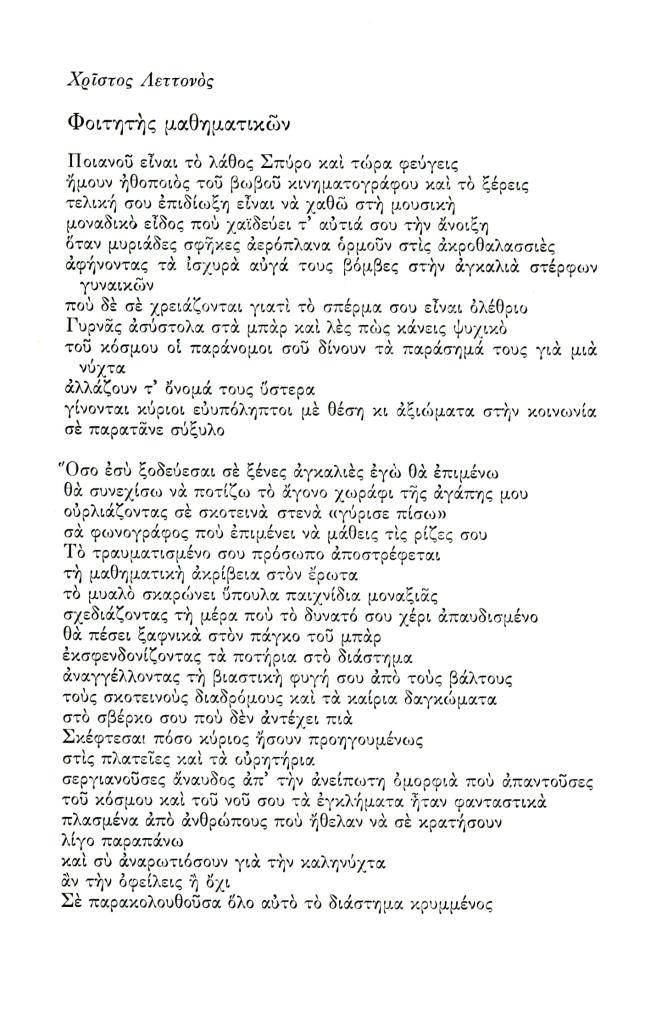 Χρῖστος Λεττονὸς
Φοιτητὴς μαθηματικῶν
Ποιανοῦ εἶναι τὸ λάθος Σπύρο καὶ τώρα φεύγεις
ἤμουν ἠθοποιὸς τοῦ βωβοῦ κινηματογράφου καὶ τὸ ξέρεις
τελική σου ἐπιδίωξη εἶναι νὰ χαθῶ στὴ μουσικὴ
μοναδικὸ εἶδος ποὺ χαϊδεύει τ' αὐτιά σου τὴν ἄνοιξη
ὅταν μυριάδες σφῆκες ἀερόπλανα ὁρμοῦν στὶς ἀκροθαλασσιὲς
ἀφήνοντας τὰ ἰσχυρὰ αὐγά τους βόμβες στὴν ἀγκαλιὰ στέρφων
γυναικῶν
ποὺ δὲ σὲ χρειάζονται γιατὶ τὸ σπέρμα σου εἶναι ὀλέθριο
Γυρνᾶς ἀσύστολα στὰ μπὰρ καὶ λὲς πὼς κάνεις ψυχικὸ
τοῦ κόσμου οἱ παράνομοι σοῦ δίνουν τὰ παράσημά τους γιὰ μιὰ
νύχτα
ἀλλάζουν τ' ὄνομά τους ὕστερα
γίνονται κύριοι εὐυπόληπτοι μὲ θέση κι ἀξιώματα στὴν κοινωνία
σὲ παρατᾶνε σύξυλο
Ὅσο ἐσὺ ξοδεύεσαι σὲ ξένες ἀγκαλιὲς ἐγὼ θὰ ἐπιμένω
θὰ συνεχίσω νὰ ποτίζω τὸ ἄγονο χωράφι τῆς ἀγάπης μου
οὐρλιάζοντας σὲ σκοτεινὰ στενὰ «γύρισε πίσω»
σὰ φωνογράφος ποὺ ἐπιμένει νὰ μάθεις τὶς ρίζες σου
Τὸ τραυματισμένο σου πρόσωπο ἀποστρέφεται
τὴ μαθηματικὴ ἀκρίβεια στὸν ἔρωτα
τὸ μυαλὸ σκαρώνει ὕπουλα παιχνίδια μοναξιᾶς
σχεδιάζοντας τὴ μέρα ποὺ τὸ δυνατό σου χέρι ἀπαυδισμένο
θὰ πέσει ξαφνικὰ στὸν πάγκο τοῦ μπὰρ
ἐκσφενδονίζοντας τὰ ποτήρια στὸ διάστημα
ἀναγγέλλοντας τὴ βιαστικὴ φυγή σου ἀπὸ τοὺς βάλτους
τοὺς σκοτεινοὺς διαδρόμους καὶ τὰ καίρια δαγκώματα
στὸ σβέρκο σου ποὺ δὲν ἀντέχει πιὰ
Σκέφτεσαι πόσο κύριος ἤσουν προηγουμένως
στὶς πλατεῖες καὶ τὰ οὐρητήρια
σεργιανοῦσες ἄναυδος ἀπ' τὴν ἀνείπωτη ὀμορφιὰ ποὺ ἀπαντοῦσες
τοῦ κόσμου καὶ τοῦ νοῦ σου τὰ ἐγκλήματα ἦταν φανταστικὰ
πλασμένα ἀπὸ ἀνθρώπους ποὺ ἤθελαν νὰ σὲ κρατήσουν
λίγο παραπάνω
καὶ σὺ ἀναρωτιόσουν γιὰ τὴν καληνύχτα
ἂν τὴν ὀφείλεις ἢ ὄχι
Σὲ παρακολουθοῦσα ὅλο αὐτὸ τὸ διάστημα κρυμμένος